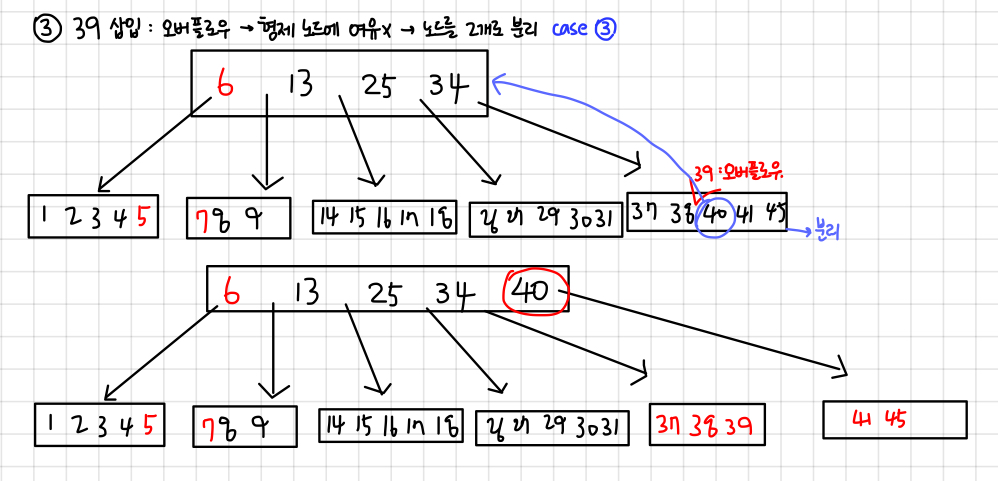 ③ 39 삽입 : 오버플로우 → 형제 노드에 여유X → 노드를 2개로 분리 case ③
6 13 25 34
39 : 오버플로우.
1 2 3 4 5 7 8 9 14 15 16 17 18 26 27 29 30 31 37 38 40 41 45
→ 분리
6 13 25 34 40
1 2 3 4 5 7 8 9 14 15 16 17 18 26 27 29 30 31 37 38 39 41 45